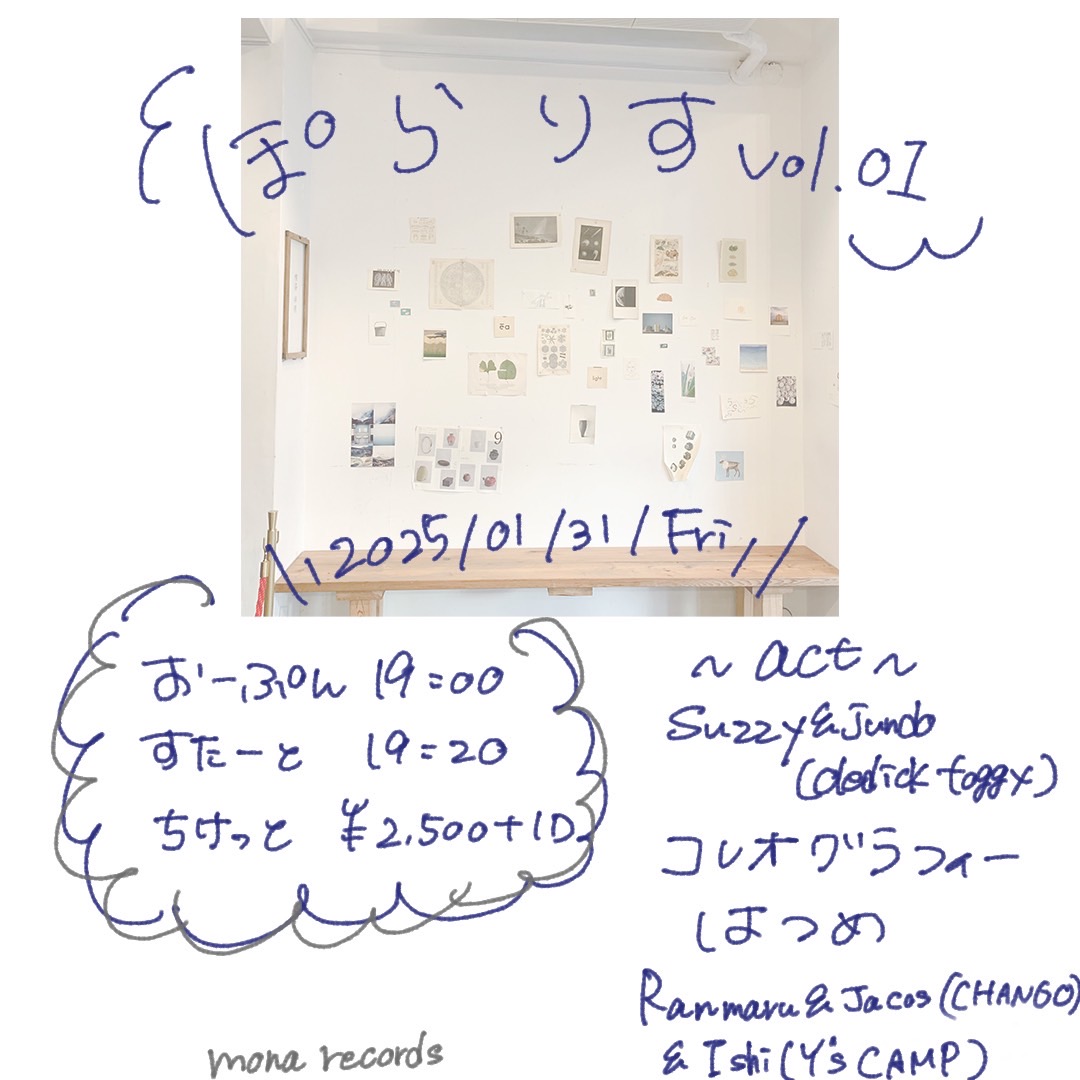 ぽらりす vol.01
2025/01/31/Fri
おーぷん 19:00
すたーと 19:20
ちけっと ¥2,500+1D
~act~
Suzzy&Jundo
(dedick foggy)
コレオグラフィー
はつめ
Ranmaru & Jacos (CHANGO)
& Ishi (Y's CAMP)
mona records